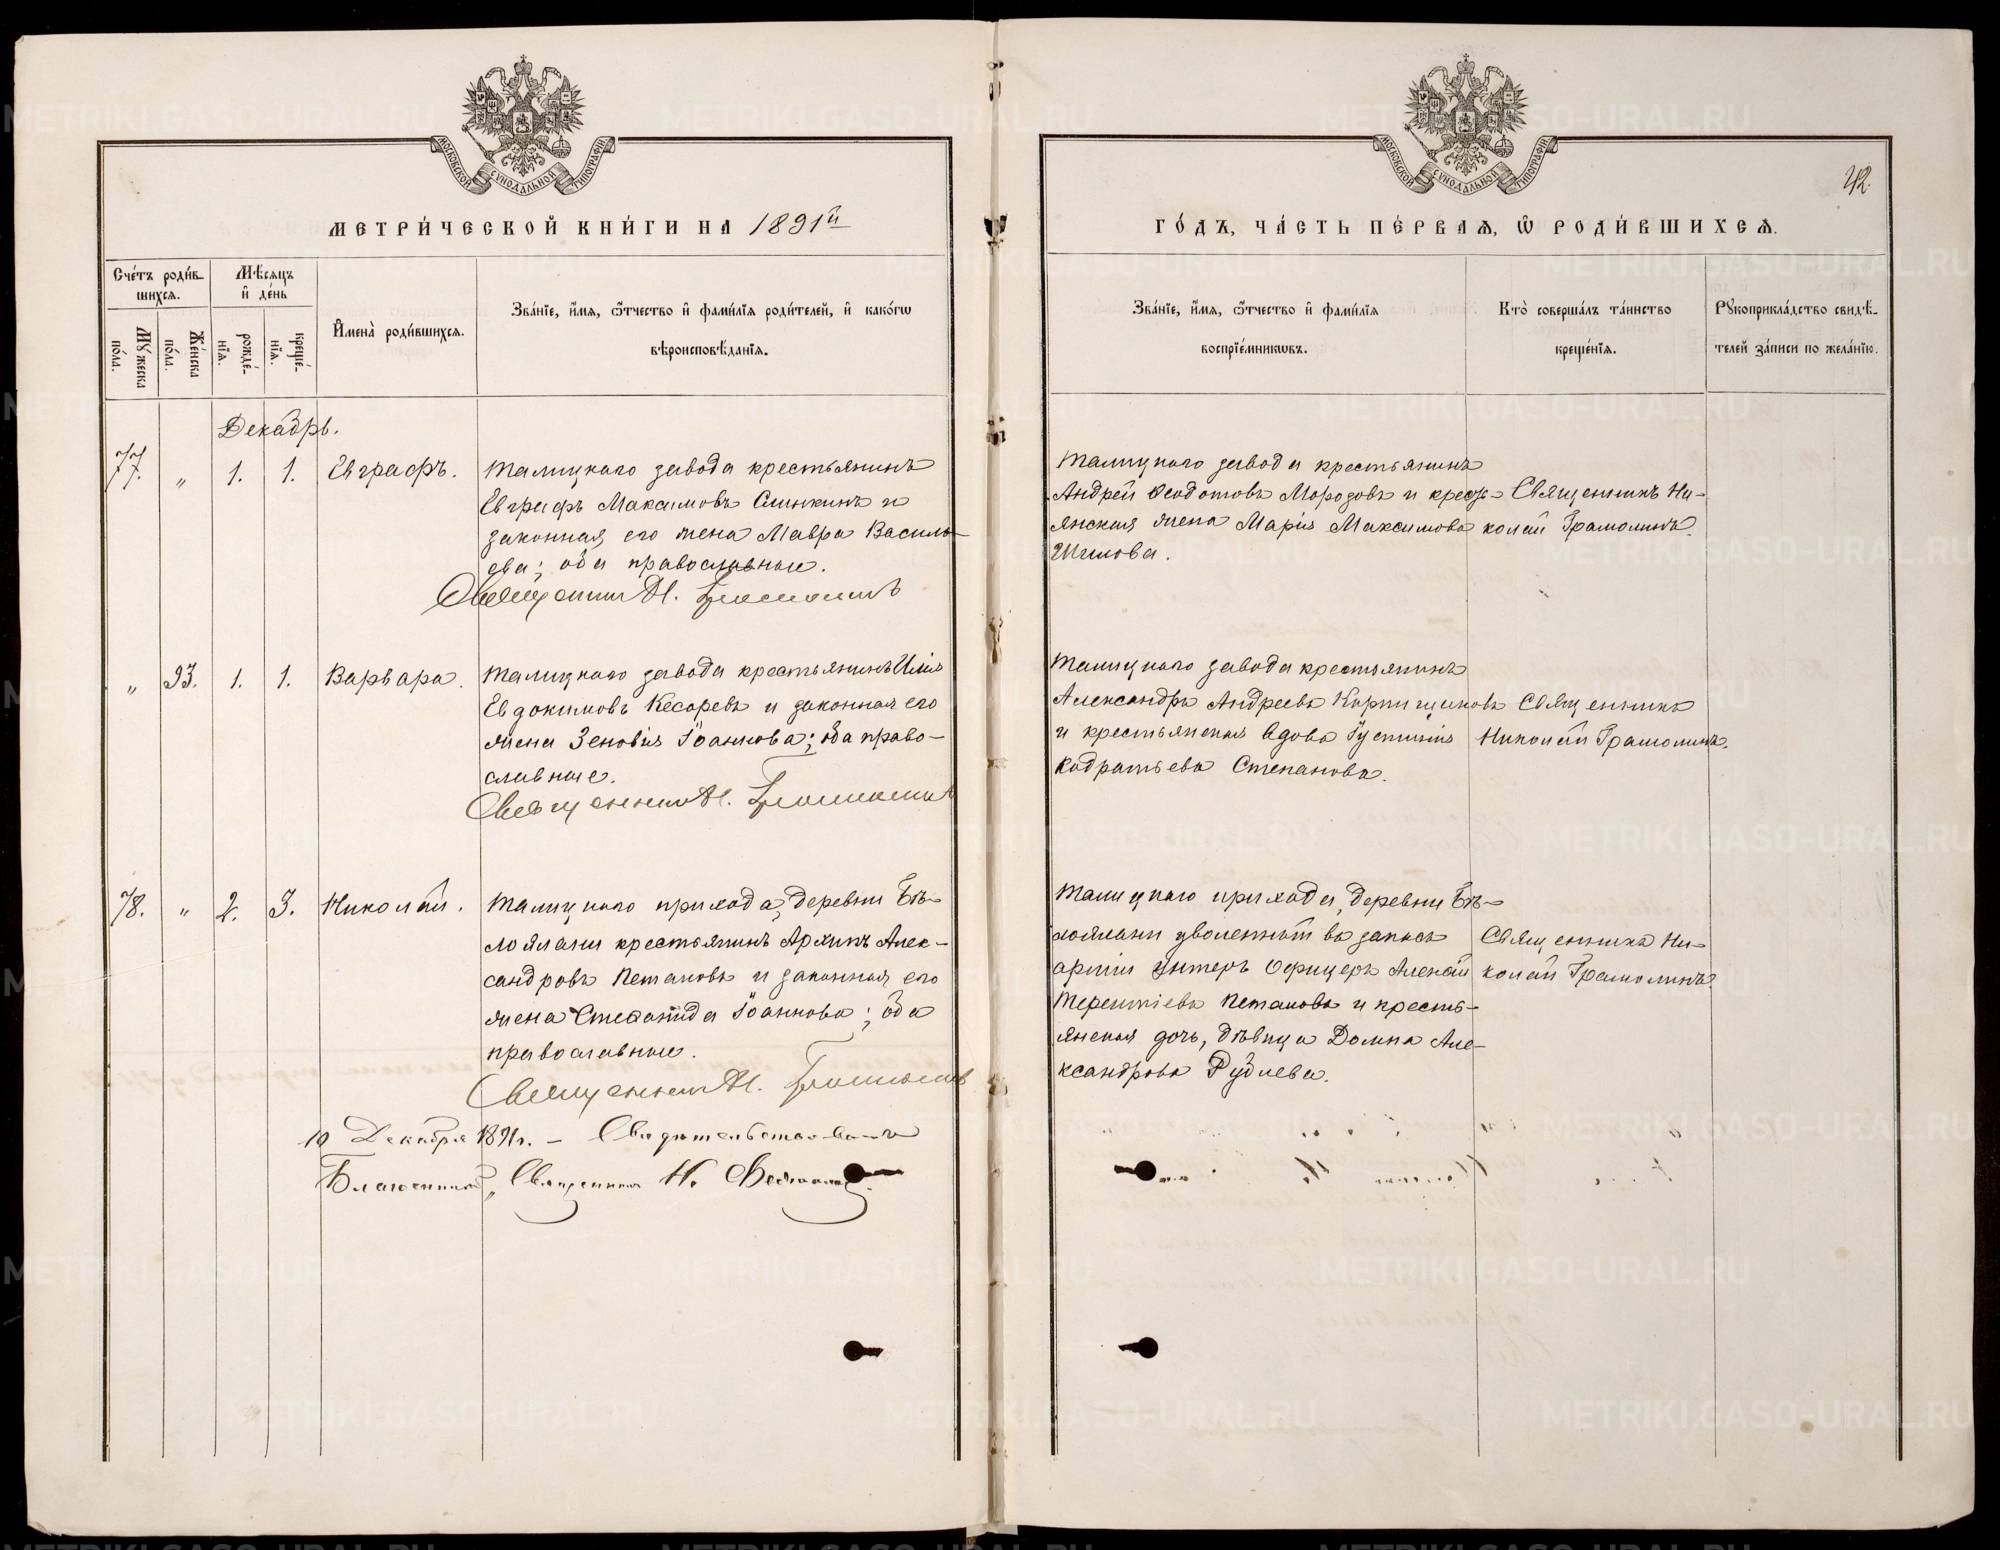 МОСКОВСКОЙ СУНОДАЛЬНОЙ ТИПОГРАФІИ
МЕТРИ́ЧЕСКОЙ КНИ́ГИ НА 1891й
Сче́тъ роди́в-
шихсѧ.
Мѣ́сѧцъ
и҆ де́нь
Мꙋ́жеска
по́ла.
Же́нска
по́ла.
рожде́-
нїѧ.
креще́-
нїѧ.
И҆мена̀ роди́вшихсѧ.
Зва́нїе, и҆́мѧ, ѻ҆́тчество и҆ фами́лїѧ роди́телей, и҆ како́гѡ
вѣроисповѣ́данїѧ.
Декабрь.
77. „ 1. 1. Евграфъ. Талицкаго завода крестьянинъ
Евграфъ Максимовъ Слинкинъ и
законная его жена Мавра Василь-
ева; оба православные.
Священникъ Н. Грамолинъ
„ 93. 1. 1. Варвара. Талицкаго завода крестьянинъ Илія
Евдокимовъ Кесаревъ и законная его
жена Зеновія Іоаннова; оба право-
славные.
Священникъ Н. Грамолинъ
78. „ 2. 3. Николай. Талицкаго прихода, деревни Бѣ-
лоялани крестьянинъ Архипъ Алек-
сандровъ Петановъ и законная его
жена Стефанида Іоаннова; оба
православные.
Священникъ Н. Грамолинъ
10 Декабря 1891г. – Свидѣтельствовалъ
Благочинный, Священникъ Н.
МОСКОВСКОЙ СУНОДАЛЬНОЙ ТИПОГРАФІИ
42.
ГО́ДЪ, ЧА́СТЬ ПЕ́РВАѦ, Ѽ РОДИ́ВШИХСѦ.
Зва́нїе, и҆́мѧ, ѻ҆́тчество и҆ фами́лїѧ
воспрїе́мникѡвъ.
Кто̀ соверша́лъ та́инство
креще́нїѧ.
Рꙋкоприкла́дство свидѣ́-
телей за́писи по жела́нїю.
Талицкаго завода крестьянинъ
Андрей Ѳеодотовъ Морозовъ и кресть- Священникъ Ни-
янская жена Марія Максимова колай Грамолинъ.
Шилова.
Талицкаго завода крестьянинъ
Александръ Андреевъ Кирпищиковъ Священникъ
и крестьянская вдова Іустинія Николай Грамолинъ.
Кодратьева Степанова.
Талицкаго прихода, деревни Бѣ-
лоялани уволенный въ запасъ Священникъ Ни-
арміи унтеръ офицеръ Алексѣй колай Грамолинъ.
Терентіевъ Петановъ и кресть-
янская дочь, дѣвица Домна Але-
ксандрова Рублева.
METRIKI.GASO-URAL.RU